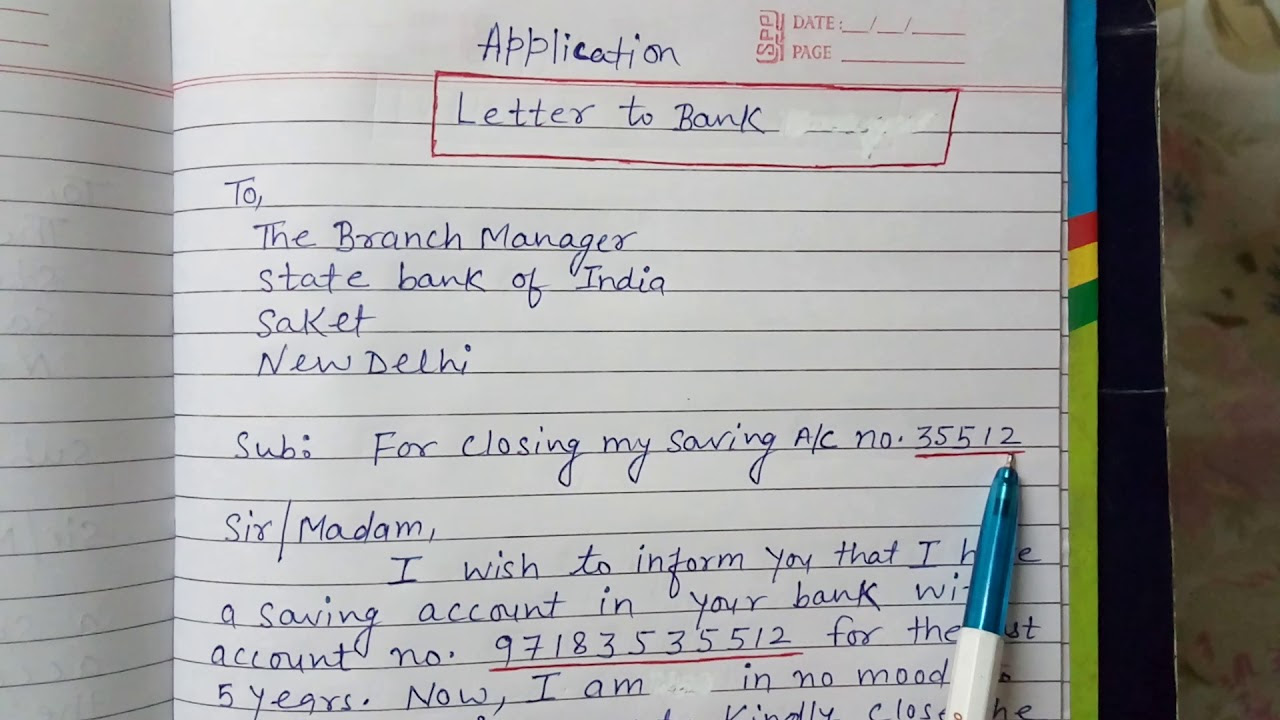 Application
SPP DATE: __/__/____
PAGE ____
Letter to Bank
To,
The Branch Manager
State bank of India
Saket
New Delhi
Sub: For closing my saving A/c no. 35512
Sir/Madam,
I wish to inform you that I
a saving account in your bank
account no. 97183535512 for the
5 years. Now, I am in no mood
Kindly